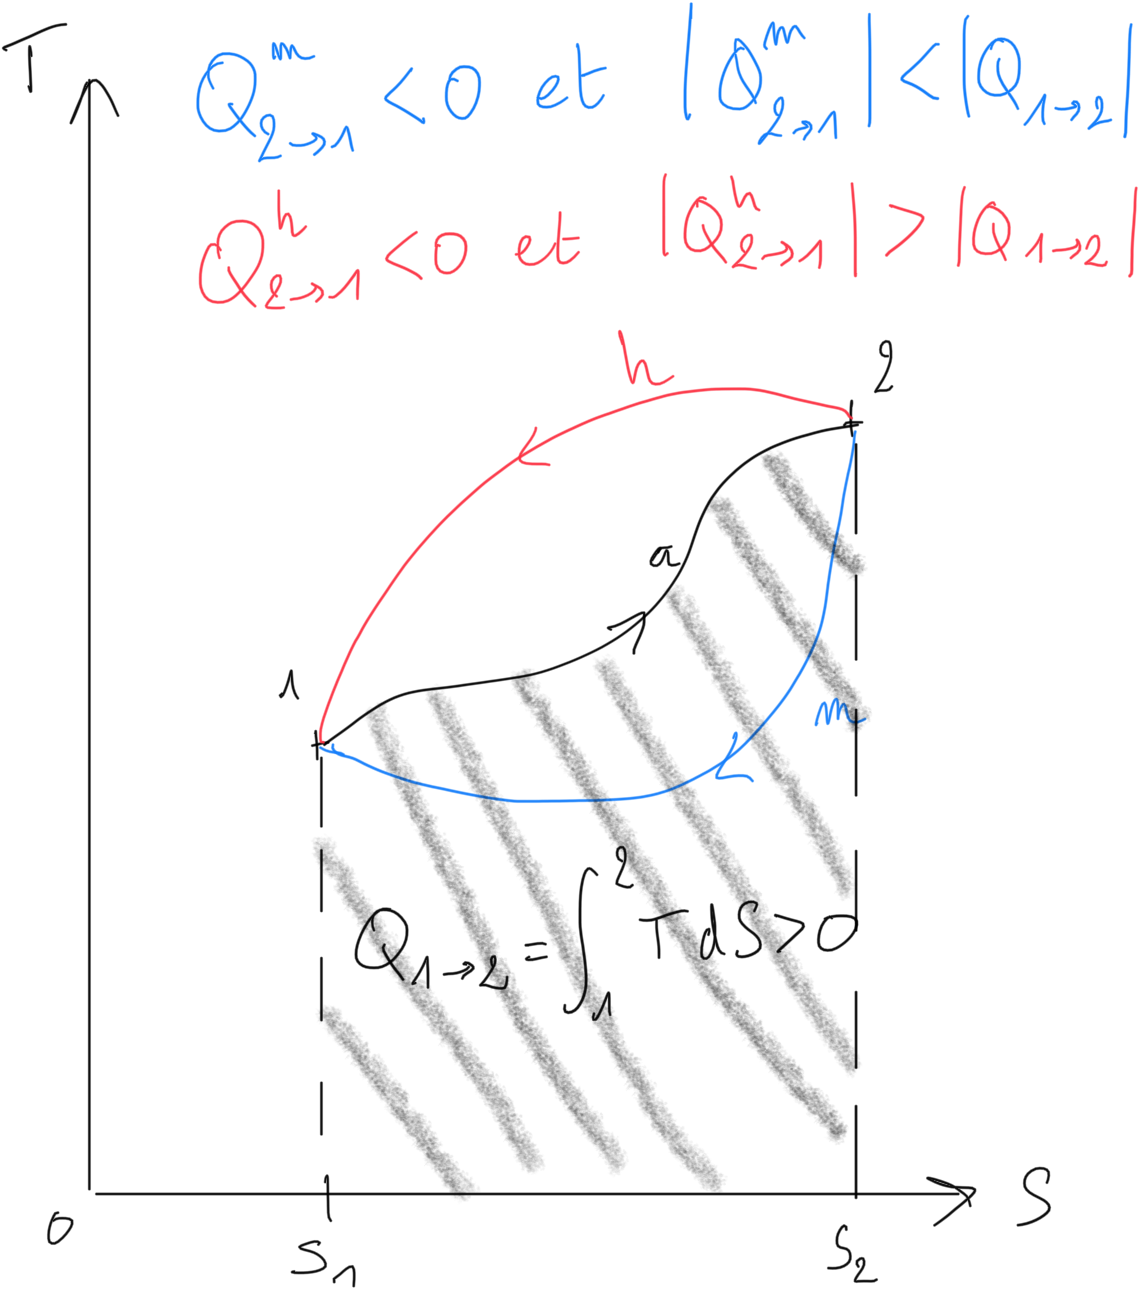 T
Q^m_{2→1} < 0 et |Q^m_{2→1}| < |Q_{1→2}|
Q^h_{2→1} < 0 et |Q^h_{2→1}| > |Q_{1→2}|
h
2
a
1
m
Q_{1→2} = ∫_1^2 T dS > 0
0
S_1
S_2
S